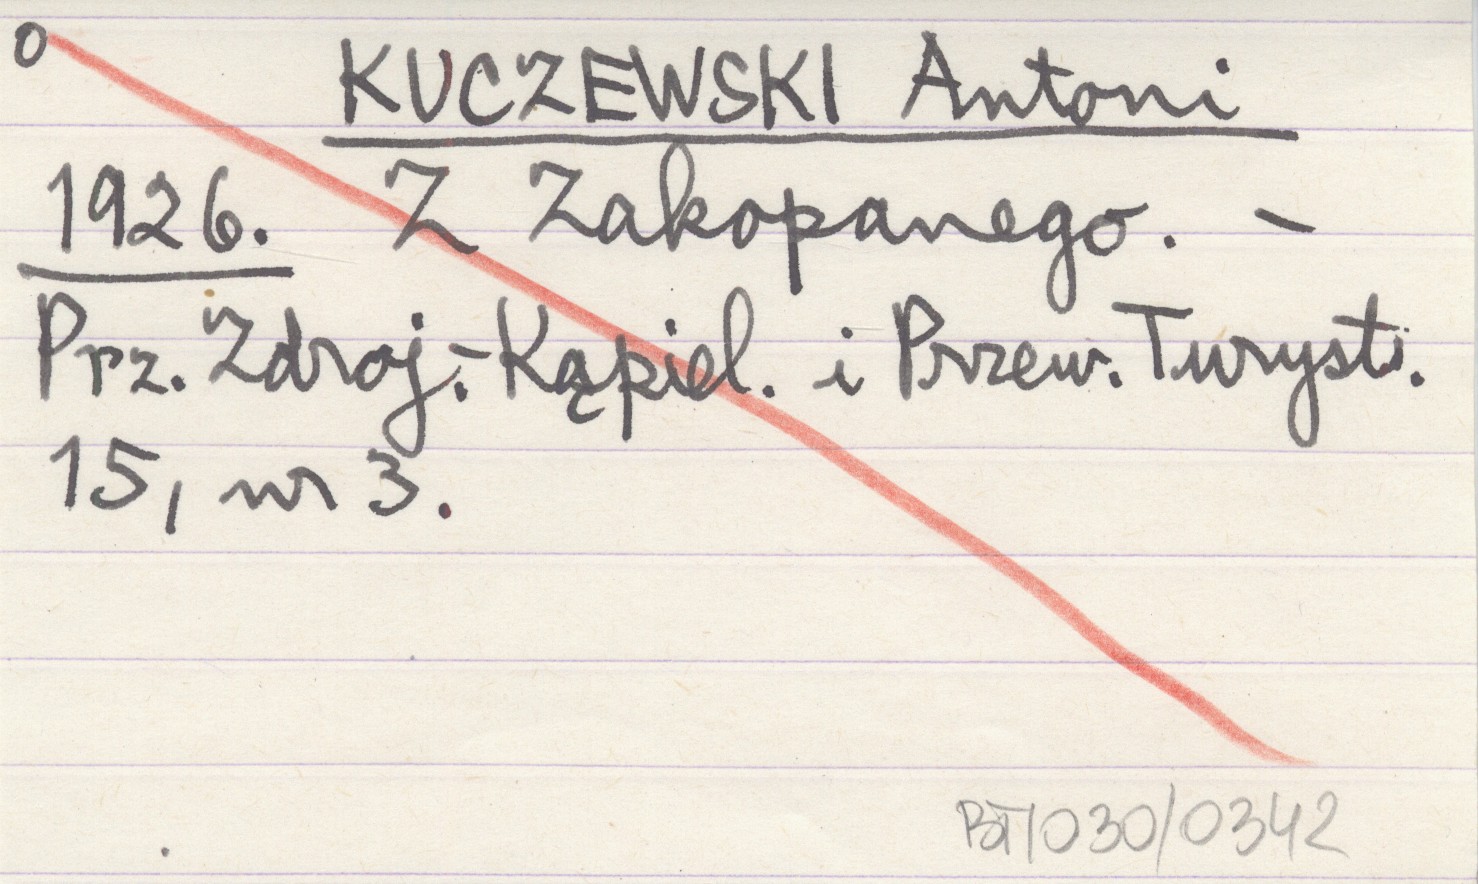 0
KUCZEWSKI Antoni
1926. Z Zakopanego. –
Prz. Zdroj.-Kąpiel. i Przew. Turyst.
15, nr 3.
BT/030/0342